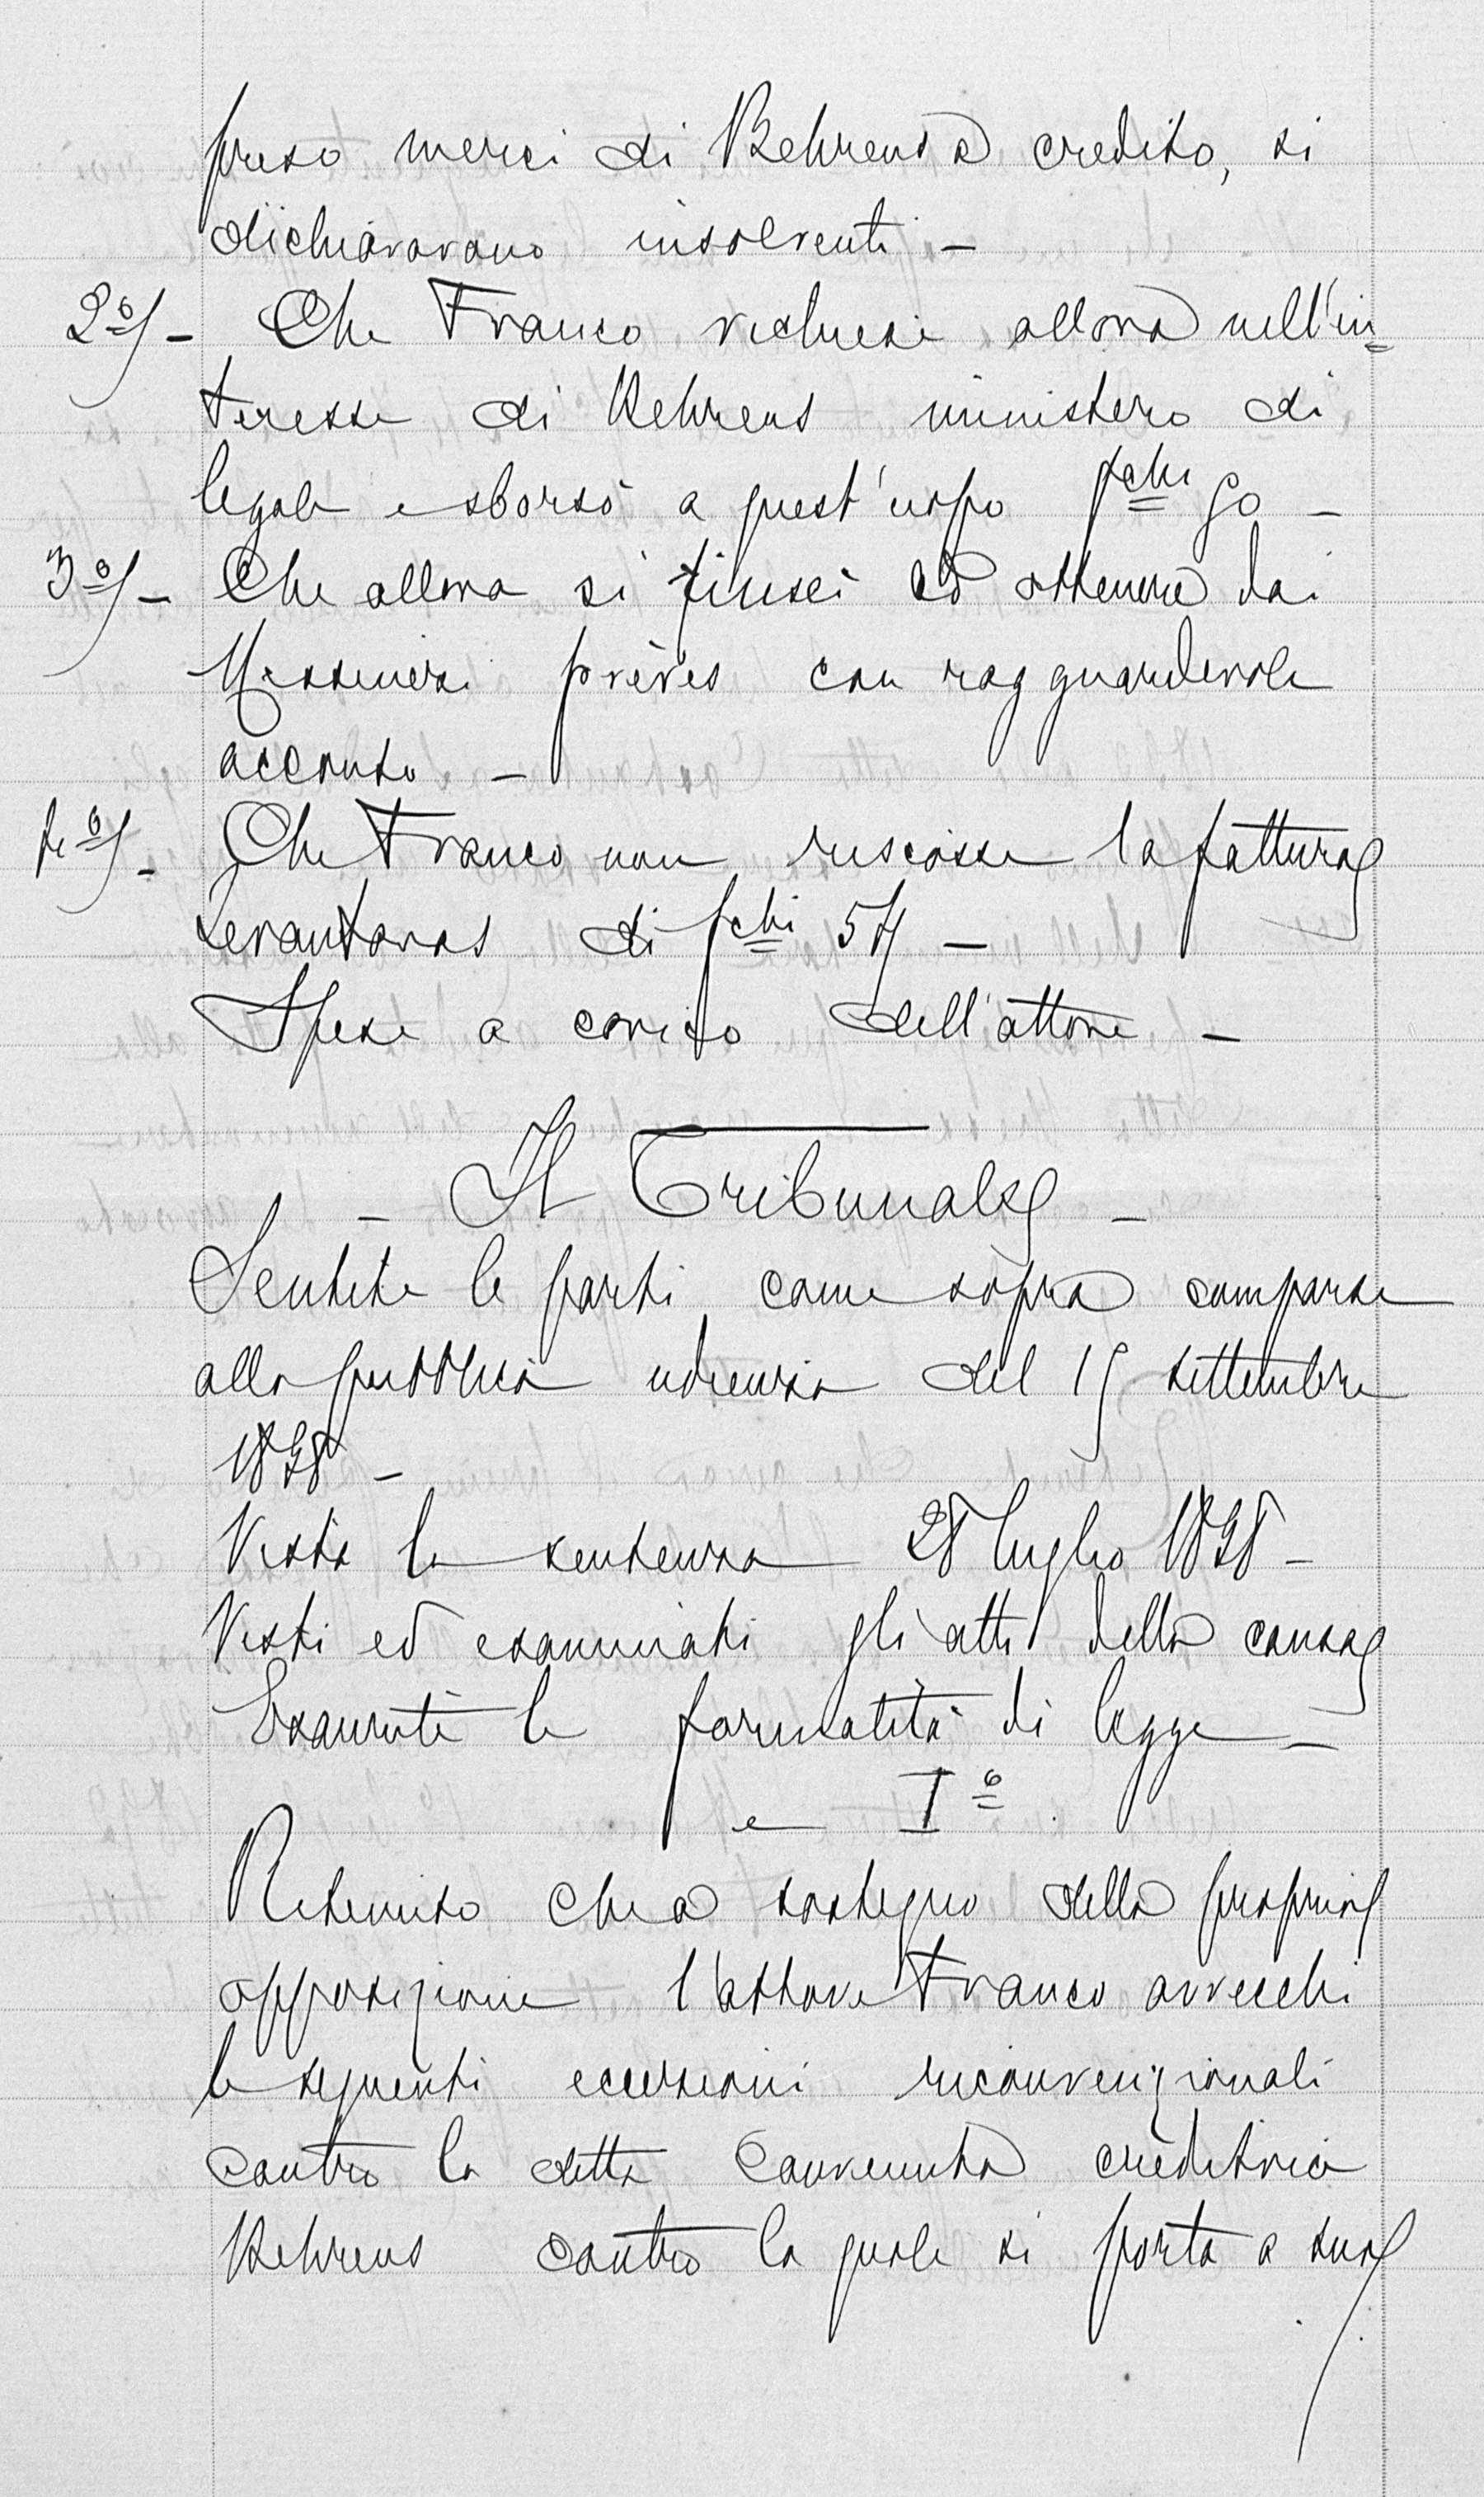 preso merci di Behrens a credito, si
dichiaravano insolventi –
2º/- Che Franco richiese allora nell'in=
teresse di Behrens ministero di
legale e sborsò a quest'uopo fchi 90 –
3º/- Che allora si riuscì ad ottenere dai
Messinesi prèves con ragguardevole
acconto –
4º/- Che Franco non riscosse la fattura
Levantaras di fchi 57 –
Spese a carico dell'attore –
– Il Tribunale –
Sentite le parti come sopra comparse
alla pubblica udienza del 19 settembre
1898 –
Vista la sentenza 28 luglio 1898 –
Visti ed esaminati gli atti della causa
Esaurite le formalità di legge –
– Iº
Ritenuto che a sostegno della propria
opposizione l'attore Franco avrecchi
le seguenti eccezioni riconvenzionali
contro la ditta convenuta creditrice
Behrens contro la quale si porta a sua